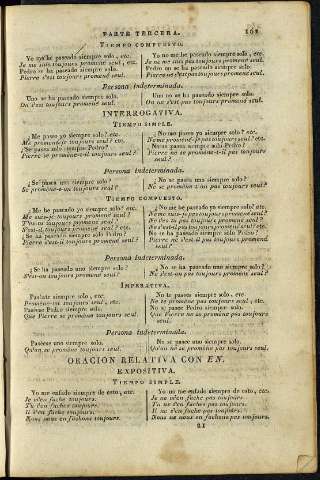 PARTE TERCERA.
TIEMPO COMPUESTO.
Yo me he paseado siempre solo, etc.
Je me suis toujours promené seul, etc.
Pedro se ha paseado siempre solo.
Pierre s'est toujours promené seul.
Yo no me he paseado siempre solo, etc.
Je ne me suis pas toujours promené seul, etc.
Pedro no se ha paseado siempre solo.
Pierre ne s'est pas toujours promené seul.
Persona indeterminada.
Uno se ha paseado siempre solo.
On s'est toujours promené seul.
No se ha paseado uno siempre solo.
On ne s'est pas toujours promené seul.
INTERROGATIVA.
TIEMPO SIMPLE.
¿Me paseo yo siempre solo? etc.
Me promené-je toujours seul? etc.
¿Se pasea siempre solo Pedro?
Pierre se promene-t-il toujours seul?
¿No me paseo yo siempre solo? etc.
Ne me promené-je pas toujours seul? etc.
¿No se pasea siempre solo Pedro?
Pierre ne se promene-t-il pas toujours seul?
Persona indeterminada.
¿Se pasea uno siempre solo?
Se promene-t-on toujours seul?
¿No se pasea uno siempre solo?
Ne se promene-t-on pas toujours seul?
TIEMPO COMPUESTO.
¿Me he paseado yo siempre solo? etc.
Me suis-je toujours promené seul?
T'es-tu toujours promené seul?
S'est-il toujours promené seul? etc.
¿Se ha paseado siempre solo Pedro?
Pierre s'est-il toujours promené seul?
¿No me he paseado yo siempre solo? etc.
Ne me suis-je pas toujours promené seul?
Ne t'es-tu pas toujours promené seul?
Ne s'est-il pas toujours promené seul? etc.
¿No se ha paseado siempre solo Pedro?
Pierre ne s'est-il pas toujours promené seul?
Persona indeterminada.
¿Se ha paseado uno siempre solo?
S'est-on toujours promené seul?
¿No se ha paseado uno siempre solo?
Ne s'est-on pas toujours promené seul?
IMPERATIVA.
Paséate siempre solo, etc.
Promene-toi toujours seul, etc.
Paséese Pedro siempre solo.
Que Pierre se promene toujours seul.
No te pasees siempre solo, etc.
Ne te promene pas toujours seul, etc.
No se pasee Pedro siempre solo.
Que Pierre ne se promene pas toujours seul.
Persona indeterminada.
Paséese uno siempre solo.
Qu'on se promene toujours seul.
No se pasee uno siempre solo.
Qu'on ne se promene pas toujours seul.
ORACION RELATIVA CON EN.
EXPOSITIVA.
TIEMPO SIMPLE.
Yo me enfado siempre de esto, etc.
Je m'en fache toujours.
Tu t'en faches toujours.
Il s'en fache toujours.
Nous nous en fachons toujours.
Yo no me enfado siempre de esto, etc.
Je ne m'en fache pas toujours.
Tu ne t'en faches pas toujours.
Il ne s'en fache pas toujours.
Nous ne nous en fachons pas toujours.